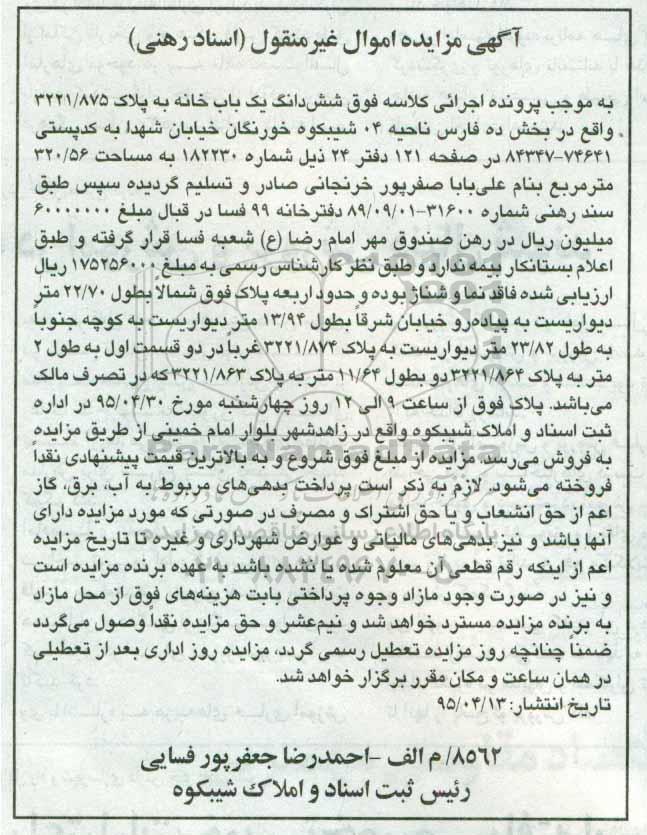 آگهی مزایده اموال غیرمنقول (اسناد رهنی)
به موجب پرونده اجرائی کلاسه فوق شش‌دانگ یک باب خانه به پلاک ۳۲۲۱/۸۷۵
واقع در بخش ده فارس ناحیه ۰۴ شیبکوه خورنگان خیابان شهدا به کدپستی
۷۴۶۴۱-۸۴۳۴۷ در صفحه ۱۲۱ دفتر ۲۴ ذیل شماره ۱۸۲۲۳۰ به مساحت ۳۲۰/۵۶
مترمربع بنام علی‌بابا صفرپور خرنجانی صادر و تسلیم گردیده سپس طبق
سند رهنی شماره ۳۱۶۰۰-۸۹/۰۹/۰۱ دفترخانه ۹۹ فسا در قبال مبلغ ۶۰۰۰۰۰۰۰
میلیون ریال در رهن صندوق مهر امام رضا (ع) شعبه فسا قرار گرفته و طبق
اعلام بستانکار بیمه ندارد و طبق نظر کارشناس رسمی به مبلغ ۱۷۵۲۵۶۰۰۰ ریال
ارزیابی شده فاقد نما و شناژ بوده و حدود اربعه پلاک فوق شمالا بطول ۲۲/۷۰ متر
دیواریست به پیاده‌رو خیابان شرقاً بطول ۱۳/۹۴ متر دیواریست به کوچه جنوباً
به طول ۲۳/۸۲ متر دیواریست به پلاک ۳۲۲۱/۸۷۴ غرباً در دو قسمت اول به طول ۲
متر به پلاک ۳۲۲۱/۸۶۴ دو بطول ۱۱/۶۴ متر به پلاک ۳۲۲۱/۸۶۳ که در تصرف مالک
می‌باشد. پلاک فوق از ساعت ۹ الی ۱۲ روز چهارشنبه مورخ ۹۵/۰۴/۳۰ در اداره
ثبت اسناد و املاک شیبکوه واقع در زاهدشهر بلوار امام خمینی از طریق مزایده
به فروش می‌رسد. مزایده از مبلغ فوق شروع و به بالاترین قیمت پیشنهادی نقداً
فروخته می‌شود. لازم به ذکر است پرداخت بدهی‌های مربوط به آب، برق، گاز
اعم از حق انشعاب و یا حق اشتراک و مصرف در صورتی که مورد مزایده دارای
آنها باشد و نیز بدهی‌های مالیاتی و عوارض شهرداری و غیره تا تاریخ مزایده
اعم از اینکه رقم قطعی آن معلوم شده یا نشده باشد به عهده برنده مزایده است
و نیز در صورت وجود مازاد وجوه پرداختی بابت هزینه‌های فوق از محل مازاد
به برنده مزایده مسترد خواهد شد و نیم‌عشر و حق مزایده نقداً وصول می‌گردد
ضمناً چنانچه روز مزایده تعطیل رسمی گردد، مزایده روز اداری بعد از تعطیلی
در همان ساعت و مکان مقرر برگزار خواهد شد.
تاریخ انتشار: ۹۵/۰۴/۱۳
۸۵۶۲/ م الف -احمدرضا جعفرپور فسایی
رئیس ثبت اسناد و املاک شیبکوه